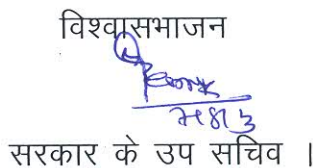 विश्वासभाजन
सरकार के उप सचिव ।